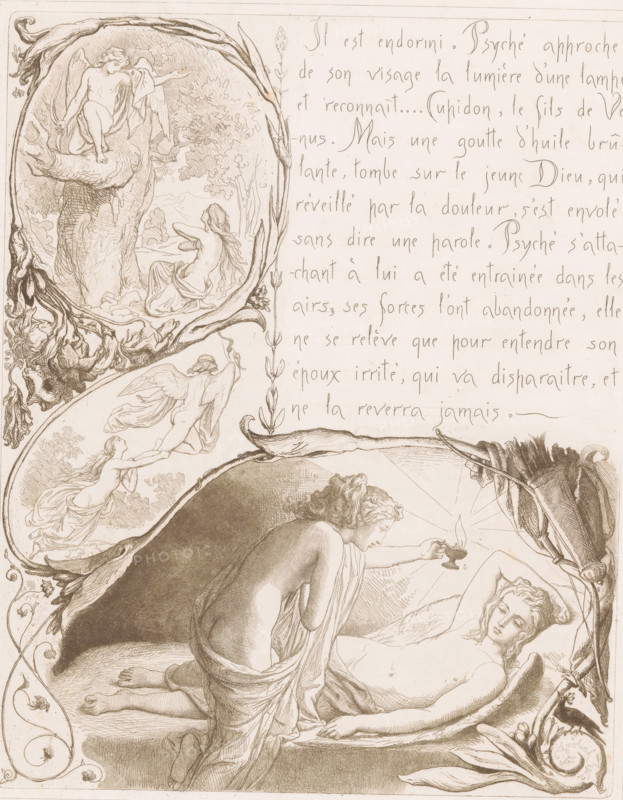 Il est endormi. Psyché approche
de son visage la lumière d'une lampe
et reconnait.... Cupidon, le fils de Vé
-nus. Mais une goutte d'huile brû-
lante, tombe sur le jeune Dieu, qui
réveillé par la douleur, s'est envolé
sans dire une parole. Psyché s'atta-
-chant à lui a été entrainée dans les
airs, ses forces l'ont abandonnée, elle
ne se relève que pour entendre son
époux irrité, qui va disparaitre, et
ne la reverra jamais.